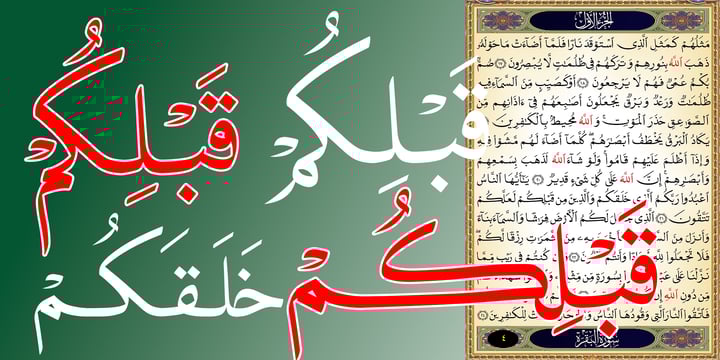 قَبْلِكُمْ
قَبْلِكُمْ
خَلَقَكُمْ
قَبْلِكُمْ
الجزء الأول
مَثَلُهُمْ كَمَثَلِ ٱلَّذِى ٱسْتَوْقَدَ نَارًا فَلَمَّآ أَضَآءَتْ مَا حَوْلَهُۥ
ذَهَبَ ٱللَّهُ بِنُورِهِمْ وَتَرَكَهُمْ فِى ظُلُمَٰتٍ لَّا يُبْصِرُونَ ١٧ صُمٌّۢ
بُكْمٌ عُمْىٌ فَهُمْ لَا يَرْجِعُونَ ١٨ أَوْ كَصَيِّبٍ مِّنَ ٱلسَّمَآءِ فِيهِ
ظُلُمَٰتٌ وَرَعْدٌ وَبَرْقٌ يَجْعَلُونَ أَصَٰبِعَهُمْ فِىٓ ءَاذَانِهِم مِّنَ
ٱلصَّوَٰعِقِ حَذَرَ ٱلْمَوْتِ وَٱللَّهُ مُحِيطٌۢ بِٱلْكَٰفِرِينَ ١٩
يَكَادُ ٱلْبَرْقُ يَخْطَفُ أَبْصَٰرَهُمْ كُلَّمَآ أَضَآءَ لَهُم مَّشَوْا۟ فِيهِ
وَإِذَآ أَظْلَمَ عَلَيْهِمْ قَامُوا۟ وَلَوْ شَآءَ ٱللَّهُ لَذَهَبَ بِسَمْعِهِمْ
وَأَبْصَٰرِهِمْ إِنَّ ٱللَّهَ عَلَىٰ كُلِّ شَىْءٍ قَدِيرٌ ٢٠ يَٰٓأَيُّهَا ٱلنَّاسُ
ٱعْبُدُوا۟ رَبَّكُمُ ٱلَّذِى خَلَقَكُمْ وَٱلَّذِينَ مِن قَبْلِكُمْ لَعَلَّكُمْ
تَتَّقُونَ ٢١ ٱلَّذِى جَعَلَ لَكُمُ ٱلْأَرْضَ فِرَٰشًا وَٱلسَّمَآءَ بِنَآءً
وَأَنزَلَ مِنَ ٱلسَّمَآءِ مِنَ ٱلثَّمَرَٰتِ رِزْقًا لَّكُمْ
فَلَا تَجْعَلُوا۟ لِلَّهِ أَندَادًا وَأَنتُمْ وَإِن كُنتُمْ فِى رَيْبٍ مِّمَّا
نَزَّلْنَا عَلَىٰ بِسُورَةٍ مِّن
مِّن دُونِ ٱللَّهِ
فَٱتَّقُوا۟ ٱلنَّارَ ٱلَّتِى وَقُودُهَا ٱلنَّاسُ وَٱلْحِجَارَةُ لِلْكَٰفِرِينَ ٢٤
سورة البقرة
٤